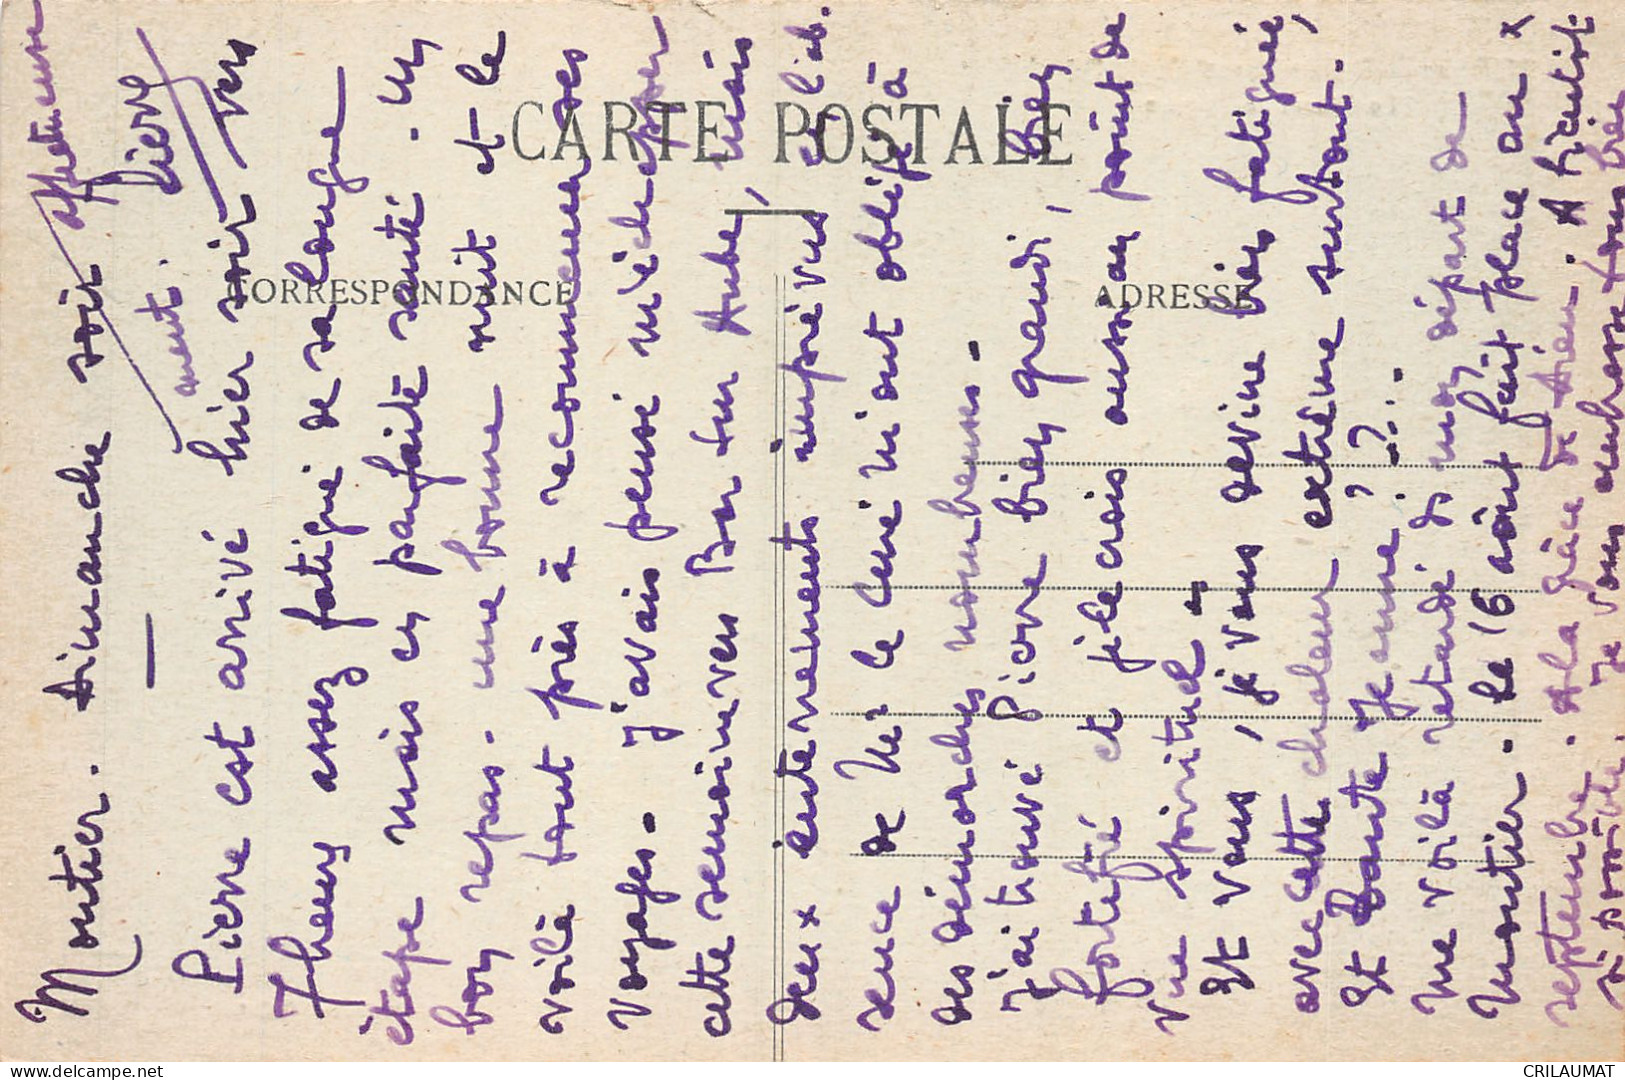 CARTE POSTALE
CORRESPONDANCE
ADRESSE
Montier. dimanche soir
Pierre est arrivé hier soir vers
7 heures assez fatigué de sa longue
étape mais en parfaite santé. Un
bon repas. une bonne nuit et le
voilà tout prêt à recommencer ses
voyages. J'avais pensé m'échapper
cette semaine vers Bar sur Aube, mais
deux enterrements imprévus et l'ab.
sence de Mr le Curé m'ont obligé à
des démarches nombreuses.
J'ai trouvé Pierre bien grandi, bien
fortifié et je le crois aussi au point de
vue spirituel.
Et vous, je vous devine bien fatiguée,
avec cette chaleur extrême surtout.
Et Tante Jeanne ? ? . .
Me voilà retardé ds mon départ de
Montier. Le 16 août fait place au x
septembre. A la grâce de Dieu. A bientôt
si possible. Je vous embrasse tous bien
affectueuse
ment.
Pierre
delcampe.net
CRILAUMAT